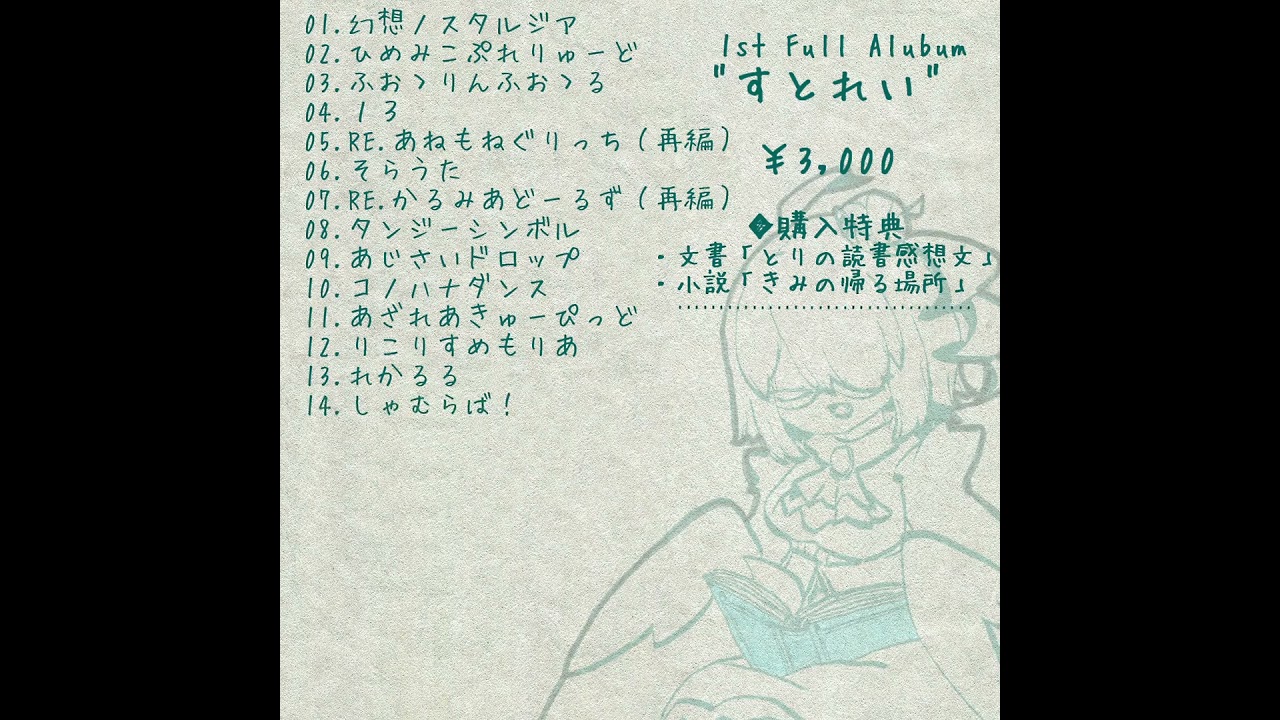 01.幻想ノスタルジア
02.ひめみこぷれりゅーど
03.ふぉゝりんふぉゝる
04.13
05.RE.あねもねぐりっち(再編)
06.そらうた
07.RE.かるみあどーるず(再編)
08.タンジーシンボル
09.あじさいドロップ
10.コノハナダンス
11.あざれあきゅーぴっど
12.りこりすめもりあ
13.れかるる
14.しゃむらば!
1st Full Alubum
"すとれい"
¥3,000
◆購入特典
・文書「とりの読書感想文」
・小説「きみの帰る場所」